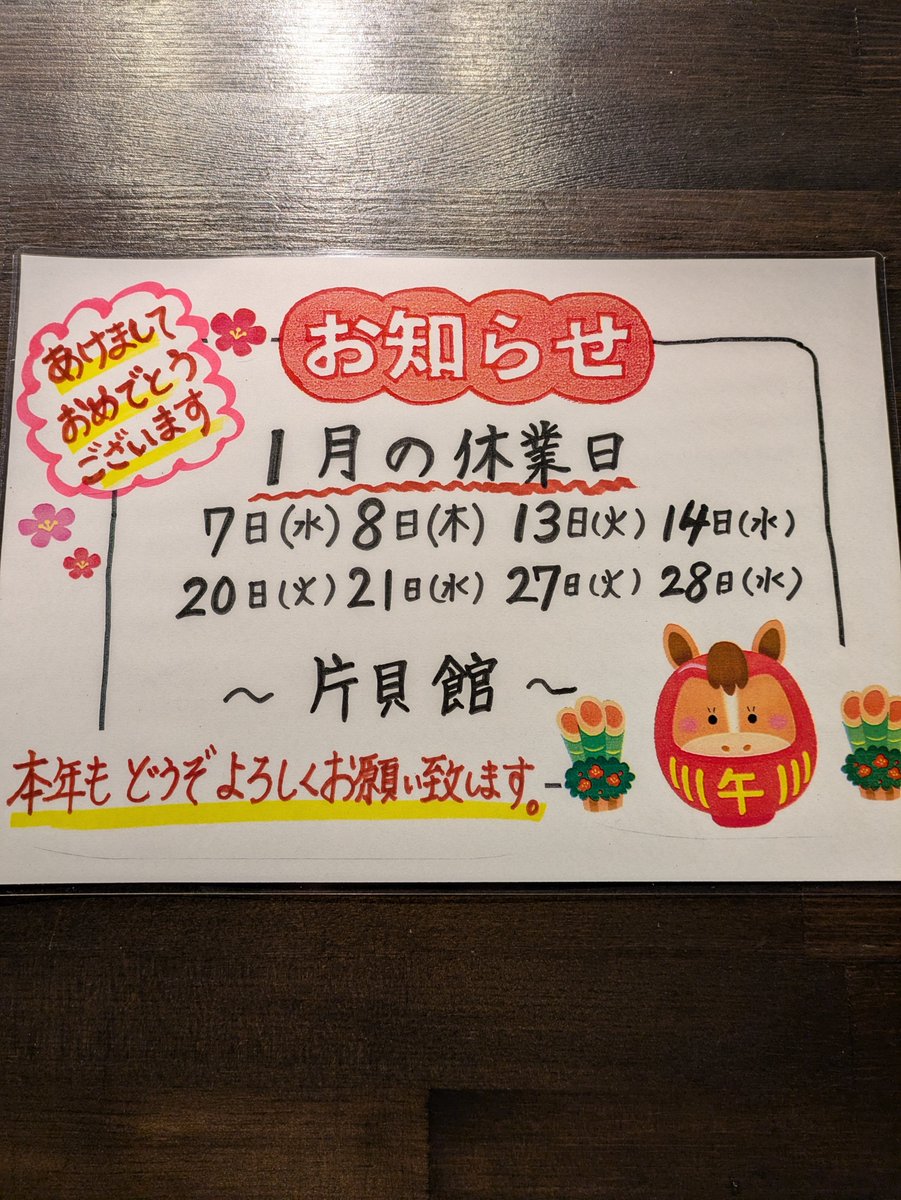 あけまして
おめでとう
ございます
お知らせ
1月の休業日
7日(水) 8日(木) 13日(火) 14日(水)
20日(火) 21日(水) 27日(火) 28日(水)
～ 片貝館 ～
本年もどうぞよろしくお願い致します。
午